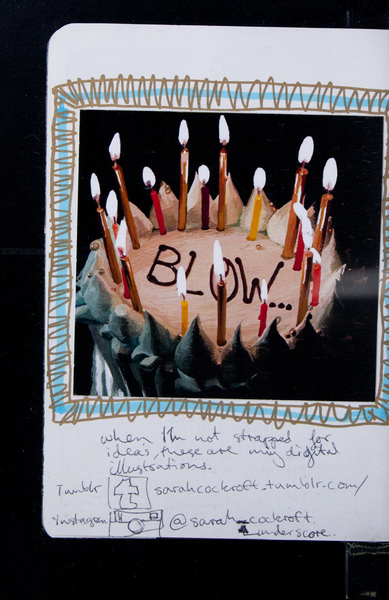 BLOW...
when I'm not strapped for
ideas, these are my digital
illustrations.
Tumblr t sarahcockroft.tumblr.com/
instagram @sarah_cockroft.
underscore.